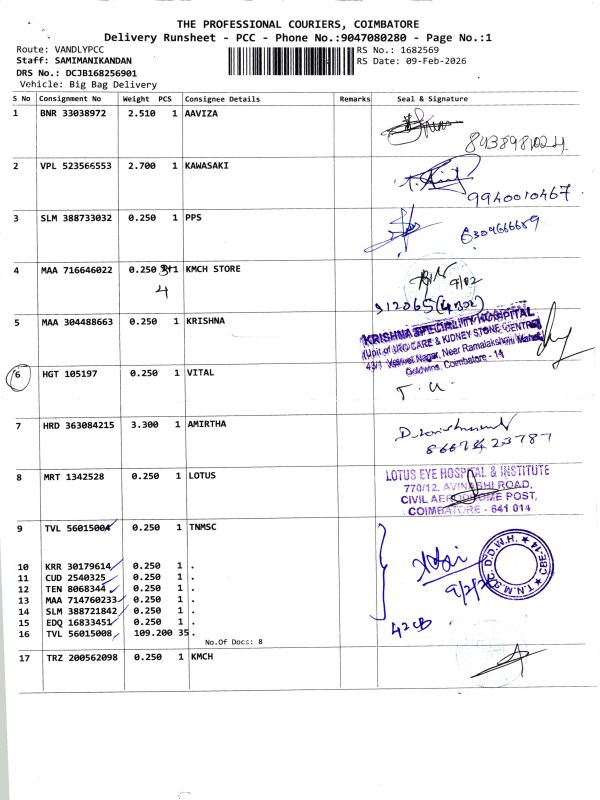 THE PROFESSIONAL COURIERS, COIMBATORE
Delivery Runsheet - PCC - Phone No.:9047080280 - Page No.:1
Route: VANDLYPCC RS No.: 1682569
Staff: SAMIMANIKANDAN RS Date: 09-Feb-2026
DRS No.: DCJB168256901
Vehicle: Big Bag Delivery
S No Consignment No Weight PCS Consignee Details Remarks Seal & Signature
1 BNR 33038972 2.510 1 AAVIZA
8438981024.
2 VPL 523566553 2.700 1 KAWASAKI
9940010467
3 SLM 388733032 0.250 1 PPS
6304666689
4 MAA 716646022 0.250 3+1 KMCH STORE
4
9/02
912065(4 Box)
5 MAA 304488663 0.250 1 KRISHNA
KRISHNA SPECIALITY HOSPITAL
(Unit of URO CARE & KIDNEY STONE CENTRE)
43/1 Veeriyel Nagar, Near Ramalakshmi Mahal,
Goldwins, Coimbatore - 14
6 HGT 105197 0.250 1 VITAL
7 HRD 363084215 3.300 1 AMIRTHA
8667423787
8 MRT 1342528 0.250 1 LOTUS
LOTUS EYE HOSPITAL & INSTITUTE
770/12, AVINASHI ROAD,
CIVIL AERODROME POST,
COIMBATORE - 641 014
9 TVL 56015004 0.250 1 TNMSC
10 KRR 30179614 0.250 1 .
11 CUD 2540325 0.250 1 .
12 TEN 8068344 0.250 1 .
13 MAA 714760233 0.250 1 .
14 SLM 388721842 0.250 1 .
15 EDQ 16833451 0.250 1 .
16 TVL 56015008 109.200 35 .
T.N.M.S.C. D.D.W.H. ★ CBE-14 ★
9/2/26
42 CB
No.Of Docs: 8
17 TRZ 200562098 0.250 1 KMCH